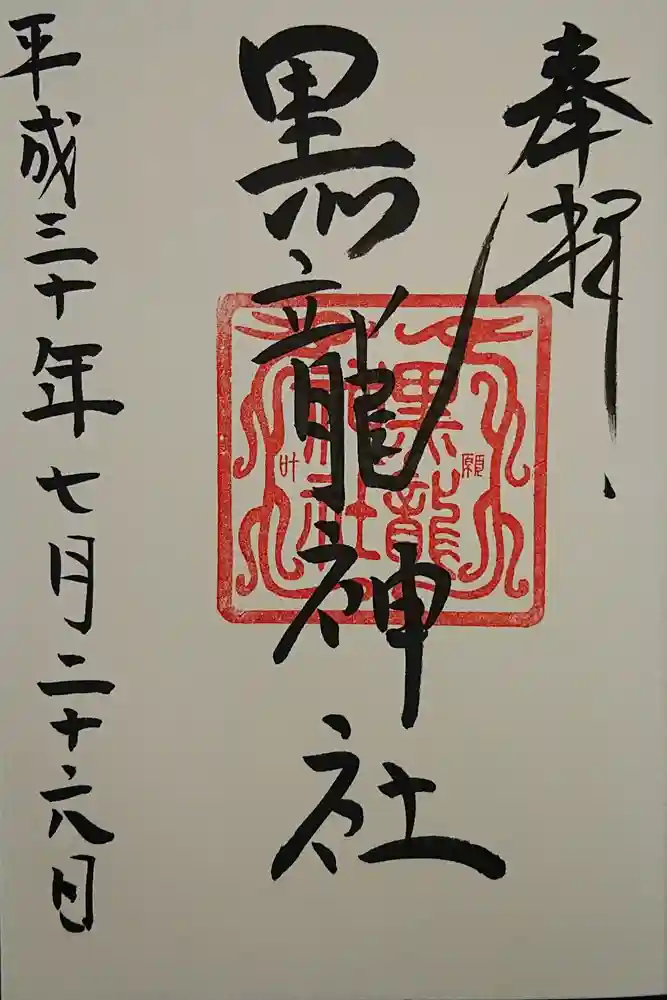 奉拝
黒龍神社
黒龍
神社
願
叶
平成三十年七月二十六日